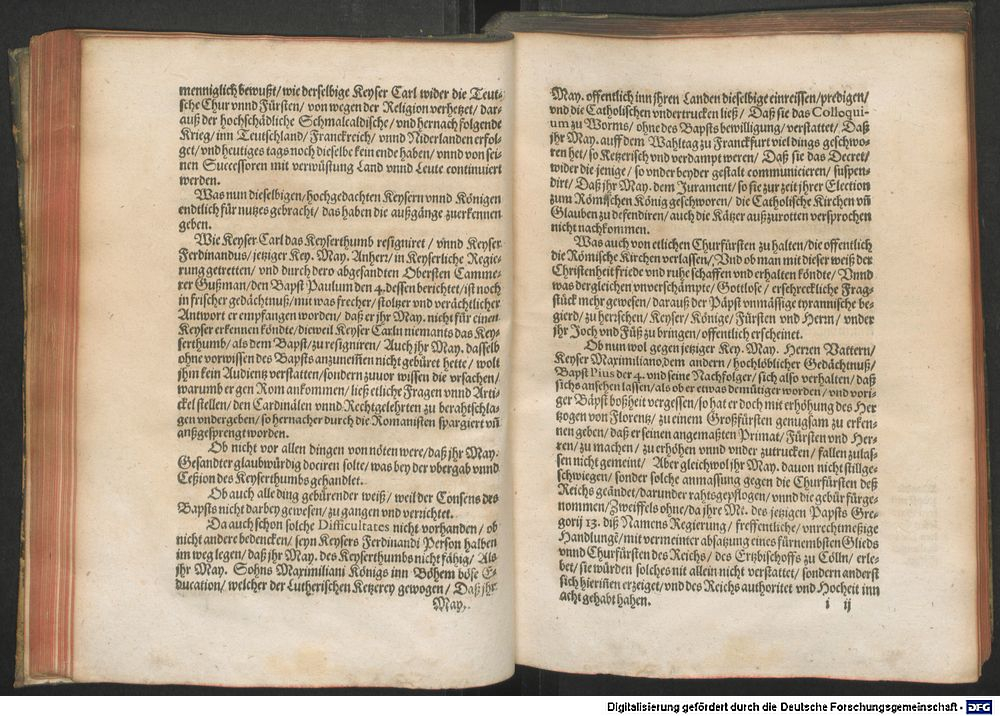 menniglich bewußt/ wie derselbige Keyser Carl wider die Teut-
sche Chur vnnd Fürsten/ von wegen der Religion verhetzet/ dar-
auß der hochschädliche Schmalcaldische/ vnd hernach folgende
Krieg/ inn Teutschland/ Franckreich/ vnnd Niderlanden erfol-
get/ vnd heutiges tags noch dieselbe kein ende haben/ vnnd von sei-
nen Successoren mit verwüstung Land vnnd Leute continuiert
werden.
Was nun dieselbigen/ hochgedachten Keysern vnnd Königen
endtlich für nutzes gebracht/ das haben die außgänge zuerkennen
geben.
Wie Keyser Carl das Keyserthumb resigniret/ vnnd Keyser
Ferdinandus/ jetziger Key. May. Anherr/ in Keyserliche Regie-
rung getretten/ vnd durch dero abgesandten Obersten Camme-
rer Gußman/ den Bapst Paulum den 4. dessen berichtet/ ist noch
in frischer gedächtnuß/ mit was frecher/ stoltzer vnd verächtlicher
Antwort er empfangen worden/ daß er jhr May. nicht für einen
Keyser erkennen köndte/ dieweil Keyser Carln niemants das Key-
serthumb/ als dem Bapst/ zu resigniren/ Auch jhr May. dasselb
ohne vorwissen des Bapsts anzunem̃en nicht gebüret hette/ wolt
jhm kein Audientz verstatten/ sondern zuuor wissen die vrsachen/
warumb er gen Rom ankommen/ ließ etliche Fragen vnnd Arti-
ckel stellen/ den Cardinälen vnnd Rechtgelehrten zu berahtschla-
gen vndergeben/ so hernacher durch die Romanisten spargiert vñ
außgesprengt worden.
Ob nicht vor allen dingen von nöten were/ daß jhr May.
Gesandter glaubwürdig dociren solte/ was bey der vbergab vnnd
Ceßion des Keyserthumbs gehandlet.
Ob auch alle ding gebürender weiß/ weil der Consens des
Bapsts nicht darbey gewesen/ zu gangen vnd verrichtet.
Da auch schon solche Difficultates nicht vorhanden/ ob
nicht andere bedencken/ seyn Keysers Ferdinandi Person halben
im weg legen/ daß jhr May. des Keyserthumbs nicht fähig/ Als
jhr May. Sohns Maximiliani Königs inn Böhem böse E-
ducation/ welcher der Lutherischen Ketzerey gewogen/ Daß jhr
May.
May. offentlich inn jhren Landen dieselbige einreissen/ predigen/
vnd die Catholischen vndertrucken ließ/ Daß sie das Colloqui-
um zu Worms/ ohne des Bapsts bewilligung/ verstattet/ Daß
jhr May. auff dem Wahltag zu Franckfurt viel dings geschwo-
ren het/ so Ketzerisch vnd verdampt weren/ Daß sie das Decret/
wider die jenige/ so vnder beyder gestalt communicieren/ suspen-
dirt/ Daß jhr May. dem Jurament/ so sie zur zeit jhrer Election
zum Römischen König geschworen/ die Catholische Kirchen vñ
Glauben zu defendiren/ auch die Kätzer außzurotten versprochen
nicht nachkommen.
Was auch von etlichen Churfürsten zu halten/ die offentlich
die Römische Kirchen verlassen/ Vnd ob man mit dieser weiß der
Christenheit friede vnd ruhe schaffen vnd erhalten köndte/ Vnnd
was dergleichen vnverschämpte/ Gottlose/ erschreckliche Frag-
stück mehr gewesen/ darauß der Päpst vnmässige tyrannische be-
gierd/ zu herrschen/ Keyser/ Könige/ Fürsten vnd Herrn/ vnder
jhr Joch vnd Füß zu bringen/ offentlich erscheinet.
Ob nun wol gegen jetziger Key. May. Herren Vattern/
Keyser Maximiliano, dem andern/ hochlöblicher Gedächtnuß/
Bapst Pius der 4. vnd seine Nachfolger/ sich also verhalten/ daß
sichs ansehen lassen/ als ob er etwas demütiger worden/ vnd vori-
ger Bäpst boßheit vergessen/ so hat er doch mit erhöhung des Her-
tzogen von Florentz/ zu einem Großfürsten genugsam zu erken-
nen geben/ daß er seinen angemaßten Primat/ Fürsten vnd Her-
ren/ zu machen/ zu erhöhen vnnd vnder zutrucken/ fallen zulas-
sen nicht gemeint/ Aber gleichwol jhr May. dauon nicht stillge-
schwiegen/ sonder solche anmassung gegen die Churfürsten deß
Reichs geandet/ darunder rahts gepflogen/ vnnd die gebür fürge-
nommen/ Zweiffels ohne/ da jhre Mt. des jetzigen Papsts Gre-
gorij 13. diß Namens Regierung/ freffentliche/ vnrechtmeßige
Handlunge/ mit vermeinter absatzung eines fürnembsten Glieds
vnnd Churfürsten des Reichs/ des Ertzbischoffs zu Cölln/ erle-
bet/ sie würden solches nit allein nicht verstattet/ sondern anderst
sich hierin̄en erzeiget/ vnd des Reichs authoritet vnd Hocheit inn
acht gehabt haben.
i ij
Digitalisierung gefördert durch die Deutsche Forschungsgemeinschaft - DFG